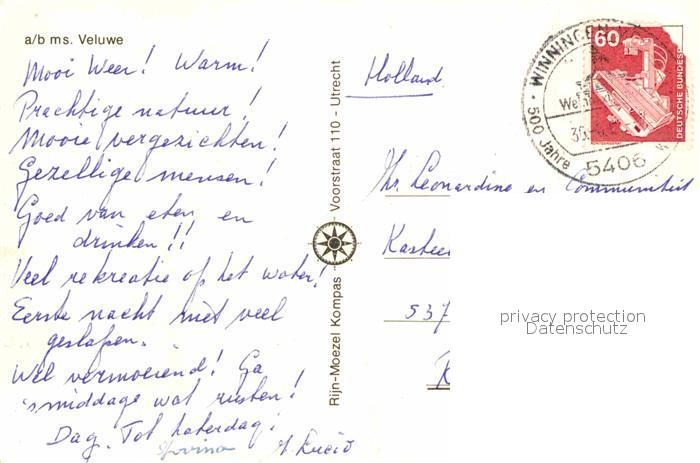 a/b ms. Veluwe
Mooi Weer! Warm!
Prachtige natuur!
Mooie vergezichten!
Gezellige mensen!
Goed van eten en
drinken!!
Veel rekreatie op het water!
Eerste nacht niet veel
geslapen.
Wel vermoeiend! Ga
's middags wat rusten!
Dag. Tot zaterdag!
Rijn-Moezel Kompas Voorstraat 110 - Utrecht
Holland
WINNINGEN
500 Jahre
5406
60
DEUTSCHE BUNDESP
Zr. Leonardine en Communiteit
Kastee
537
privacy protection
Datenschutz